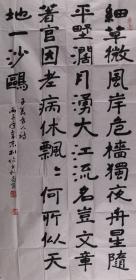 細草微風岸危檣獨夜舟星隨
平埜闊月湧大江流名豈文章
著官因老病休飄飄何所似天
地一沙鷗